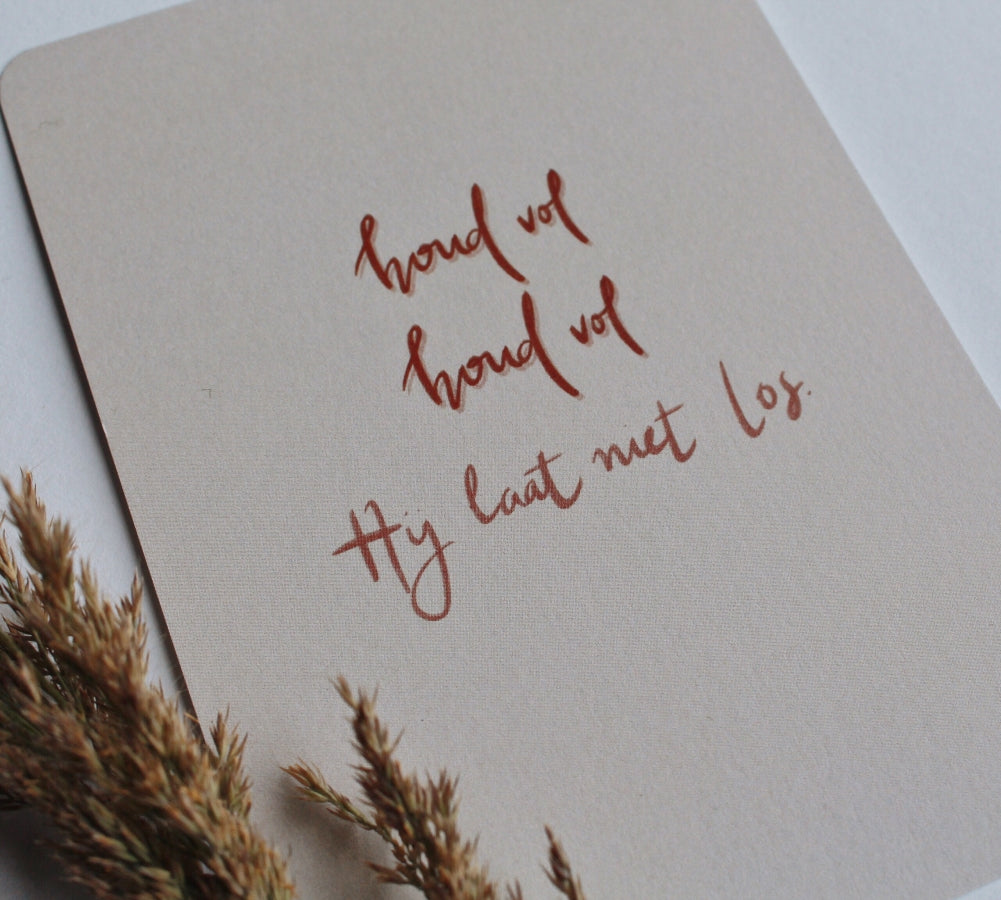 houd vol
houd vol
Hij laat niet los.